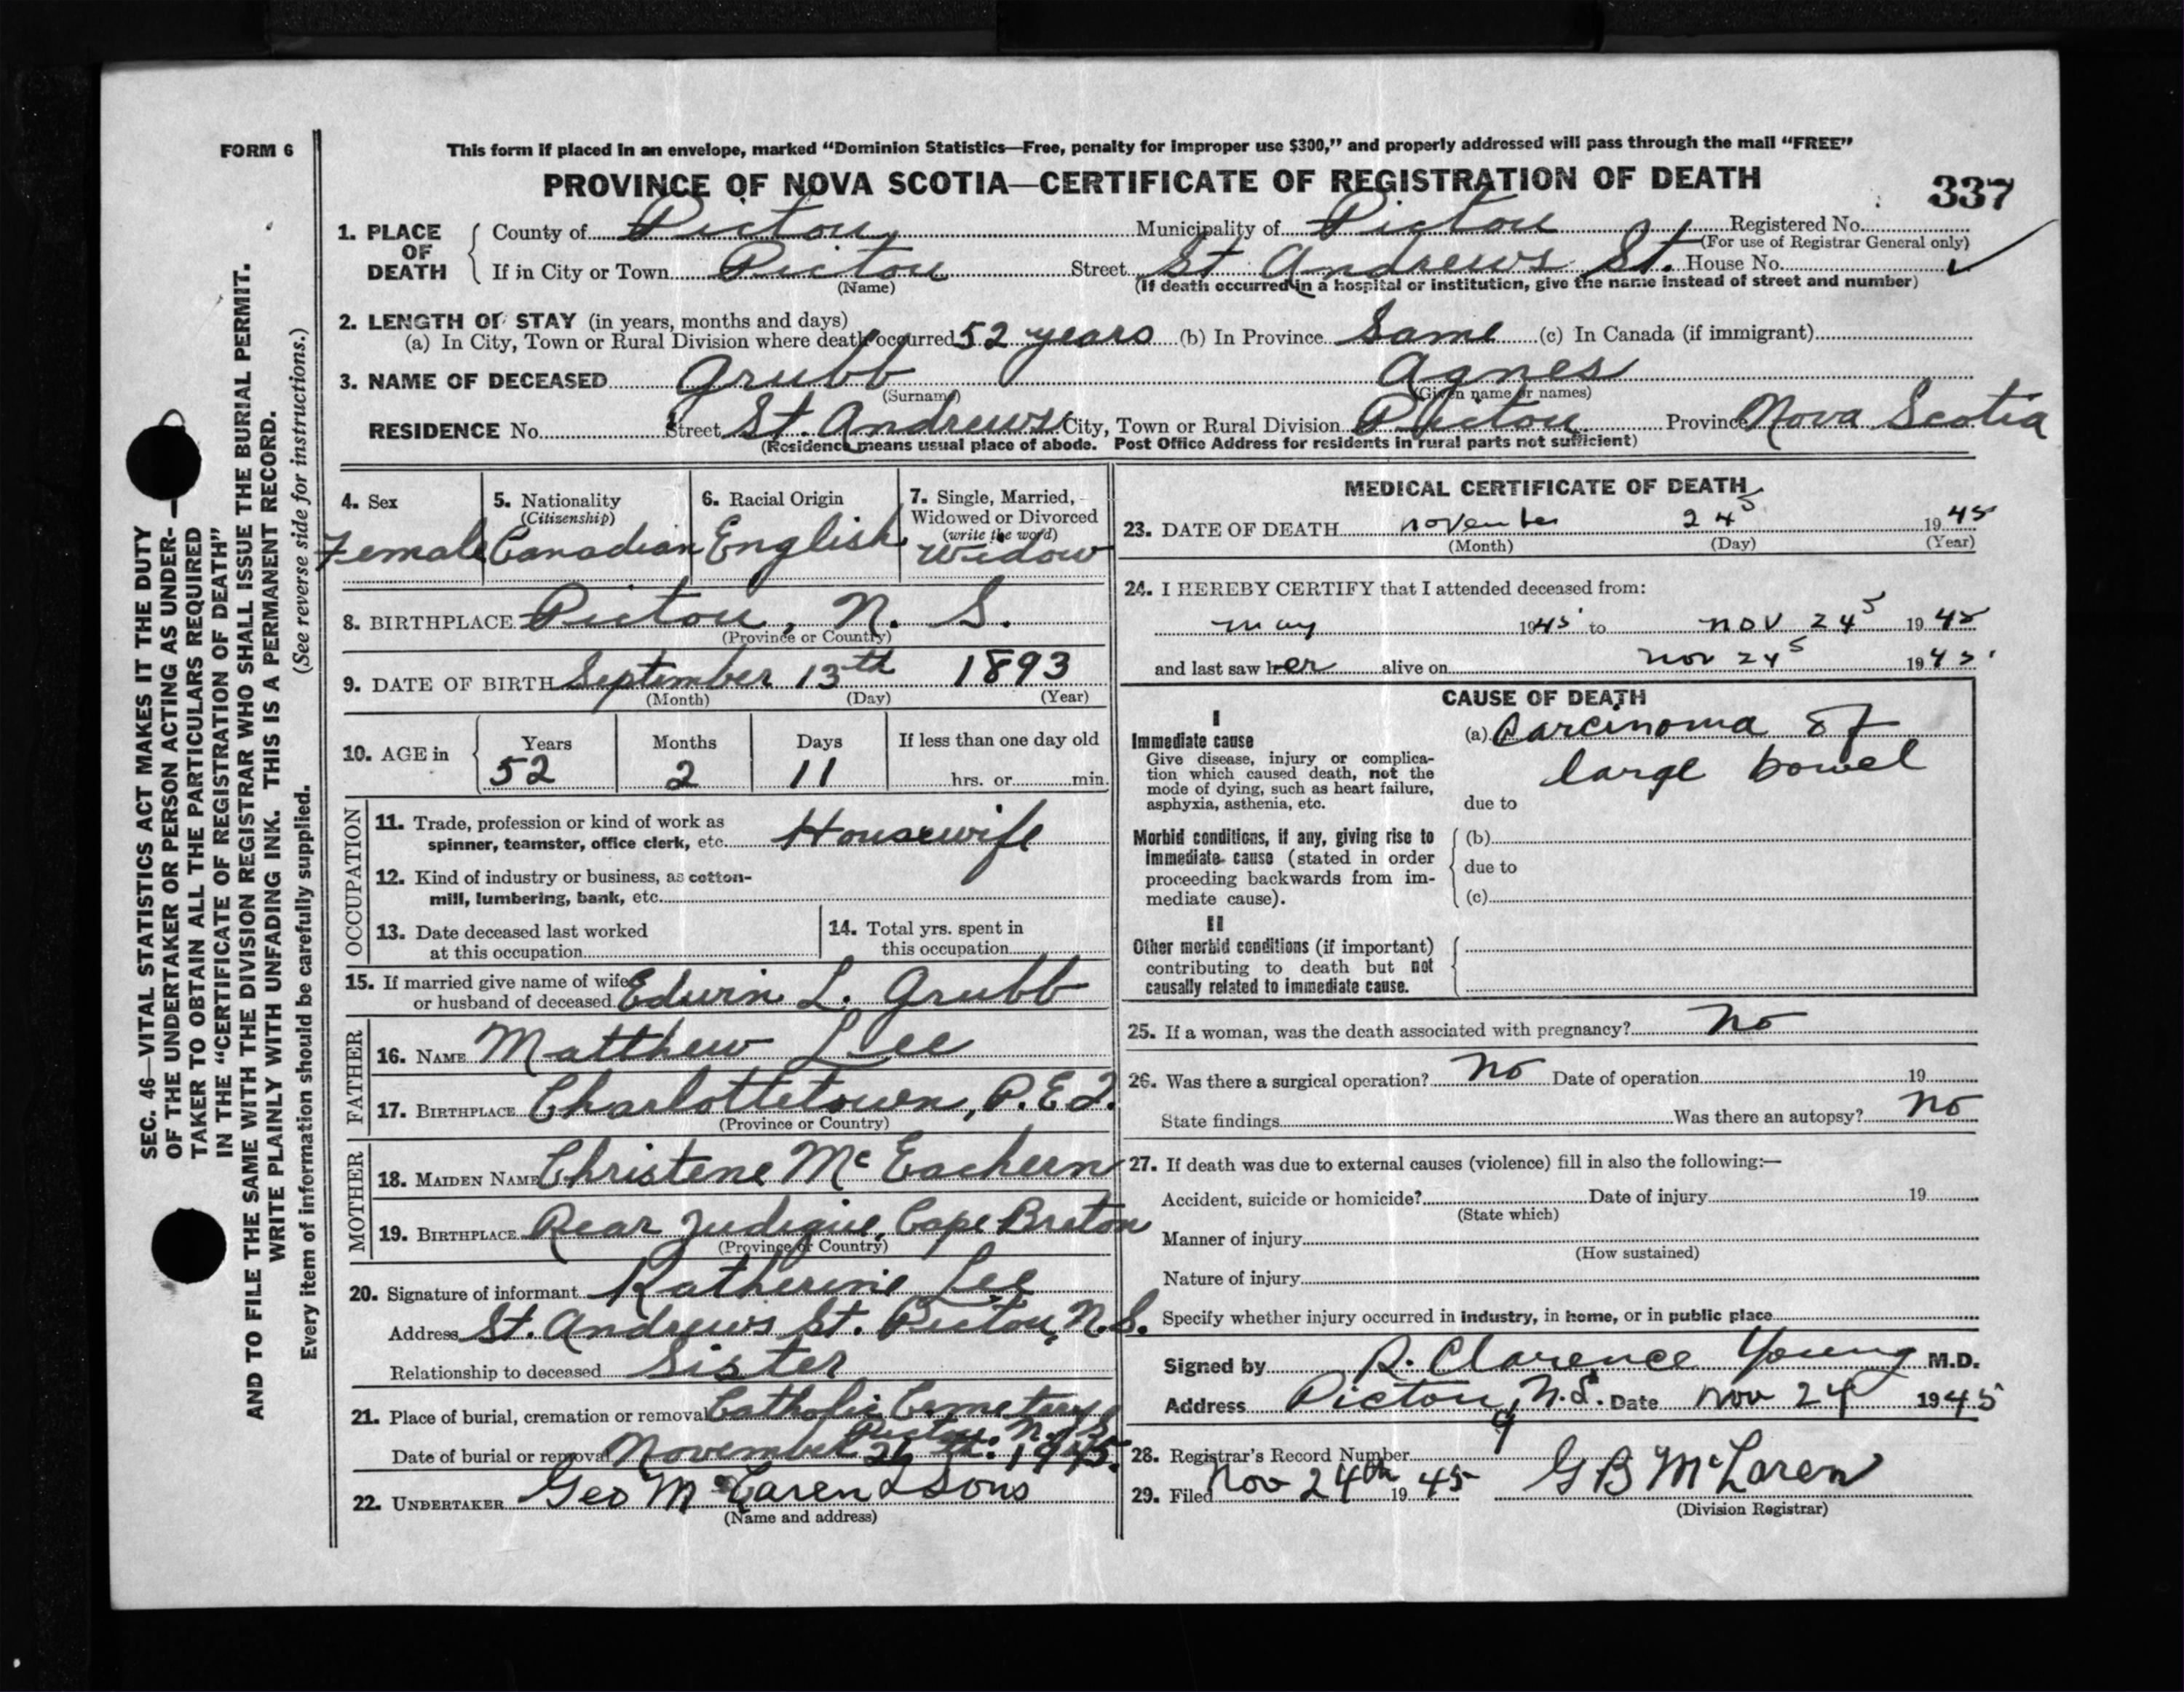 FORM 6
This form if placed in an envelope, marked “Dominion Statistics—Free, penalty for improper use $300,” and properly addressed will pass through the mail “FREE”
PROVINCE OF NOVA SCOTIA—CERTIFICATE OF REGISTRATION OF DEATH
337
1. PLACE OF DEATH County of Pictou Municipality of Pictou Registered No.
(For use of Registrar General only)
If in City or Town Pictou Street St Andrews St. House No.
(Name) (If death occurred in a hospital or institution, give the name instead of street and number)
2. LENGTH OF STAY (in years, months and days)
(a) In City, Town or Rural Division where death occurred 52 years (b) In Province Same (c) In Canada (if immigrant)
3. NAME OF DECEASED Grubb Agnes
(Surname) (Given name or names)
RESIDENCE No. Street St. Andrews City, Town or Rural Division Pictou Province Nova Scotia
(Residence means usual place of abode. Post Office Address for residents in rural parts not sufficient)
4. Sex
Female
5. Nationality
(Citizenship)
Canadian
6. Racial Origin
English
7. Single, Married,
Widowed or Divorced
(write the word)
Widow
8. BIRTHPLACE Pictou, N. S.
(Province or Country)
9. DATE OF BIRTH September 13th 1893
(Month) (Day) (Year)
10. AGE in Years Months Days If less than one day old
52 2 11 hrs. or min.
OCCUPATION
11. Trade, profession or kind of work as
spinner, teamster, office clerk, etc. Housewife
12. Kind of industry or business, as cotton-
mill, lumbering, bank, etc.
13. Date deceased last worked
at this occupation
14. Total yrs. spent in
this occupation
15. If married give name of wife
or husband of deceased Edwin L. Grubb
FATHER
16. NAME Matthew Lee
17. BIRTHPLACE Charlottetown, P.E.I.
(Province or Country)
MOTHER
18. MAIDEN NAME Christene McEachern
19. BIRTHPLACE Rear Judique, Cape Breton
(Province or Country)
20. Signature of informant Katherine Lee
Address St. Andrews St. Pictou, N.S.
Relationship to deceased Sister
21. Place of burial, cremation or removal Catholic Cemetery
Pictou N.S.
Date of burial or removal November 26th. 1945.
22. UNDERTAKER Geo McLaren & Sons
(Name and address)
MEDICAL CERTIFICATE OF DEATH
23. DATE OF DEATH November 24 1945
(Month) (Day) (Year)
24. I HEREBY CERTIFY that I attended deceased from:
May 1945 to Nov 24 1945
and last saw her alive on Nov 24 1945
CAUSE OF DEATH
I
Immediate cause
Give disease, injury or complica-
tion which caused death, not the
mode of dying, such as heart failure,
asphyxia, asthenia, etc.
(a) Carcinoma of
large bowel
due to
Morbid conditions, if any, giving rise to
immediate cause (stated in order
proceeding backwards from im-
mediate cause).
(b)
due to
(c)
II
Other morbid conditions (if important)
contributing to death but not
causally related to immediate cause.
25. If a woman, was the death associated with pregnancy? No
26. Was there a surgical operation? No Date of operation 19
State findings Was there an autopsy? No
27. If death was due to external causes (violence) fill in also the following:—
Accident, suicide or homicide? Date of injury 19
(State which)
Manner of injury
(How sustained)
Nature of injury
Specify whether injury occurred in industry, in home, or in public place
Signed by R. Clarence Young M.D.
Address Pictou, N.S. Date Nov 24 1945
28. Registrar's Record Number
29. Filed Nov 24th 1945 G B McLaren
(Division Registrar)
SEC. 46—VITAL STATISTICS ACT MAKES IT THE DUTY
OF THE UNDERTAKER OR PERSON ACTING AS UNDER-
TAKER TO OBTAIN ALL THE PARTICULARS REQUIRED
IN THE “CERTIFICATE OF REGISTRATION OF DEATH”
AND TO FILE THE SAME WITH THE DIVISION REGISTRAR WHO SHALL ISSUE THE BURIAL PERMIT.
WRITE PLAINLY WITH UNFADING INK. THIS IS A PERMANENT RECORD.
Every item of information should be carefully supplied. (See reverse side for instructions.)